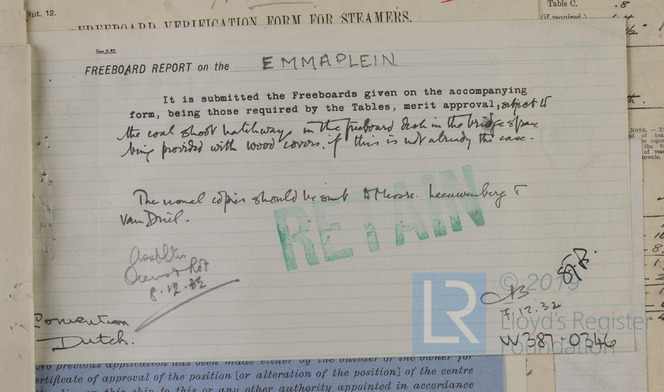 Rpt. 12.
FREEBOARD VERIFICATION FORM FOR STEAMERS.
Table C.
(if required)
FREEBOARD REPORT on the EMMAPLEIN
It is submitted the Freeboards given on the accompanying
form, being those required by the Tables, merit approval, subject to
the coal shoot hatchways in the freeboard deck in the bridge space
being provided with wood covers, if this is not already the case.
The usual copies should be sent to Messrs. Leeuwenberg &
van Driel.
RETAIN
8.12.32
Convention
Dutch.
7.12.32
LR
© 2019
Lloyd's Register
Foundation
W387-0346
No previous application has been made either by the builder or the owner for
certificate of approval of the position [or alteration of the position] of the centre
disc to this or any other authority appointed in accordance